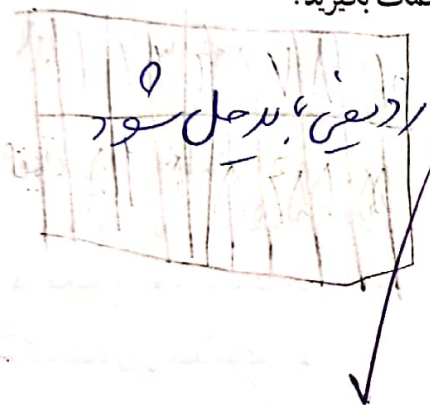 بگیرید.
ردیفی، باید حل شود